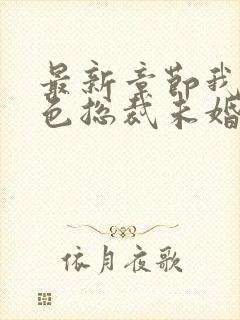 最新章节我
色总裁未婚
依月夜歌